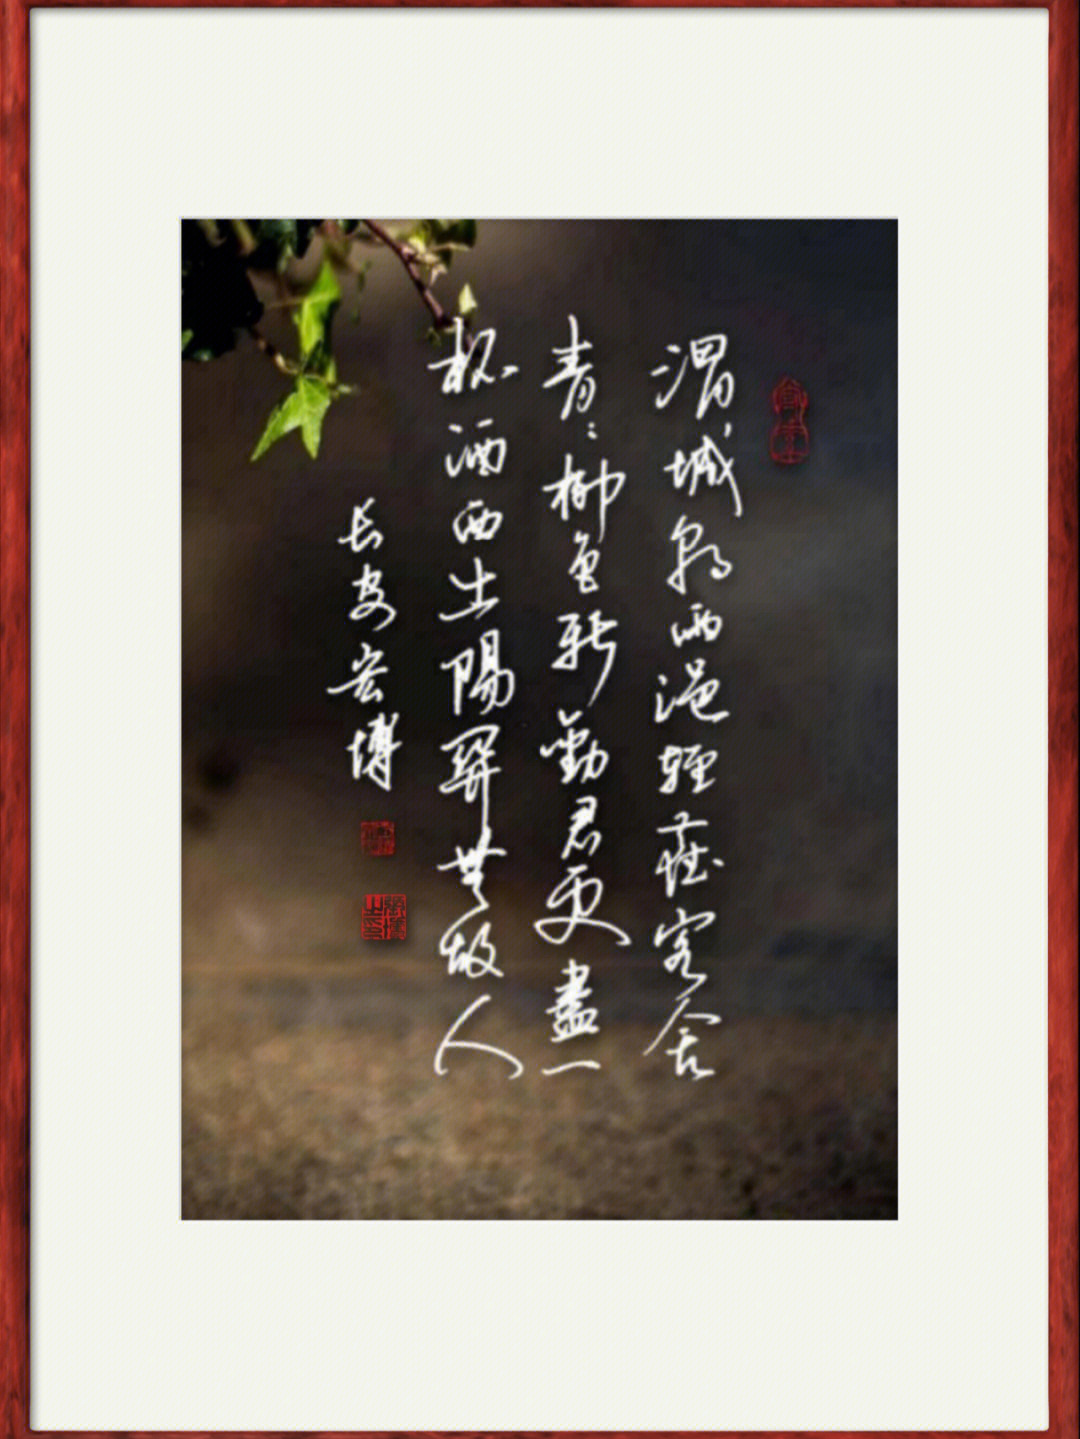 渭城朝雨浥轻尘客舍
青〻柳色新劝君更盡一
杯酒西出陽関無故人
长安宏博